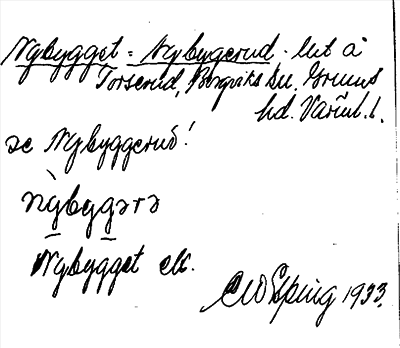 Nybygget = Nybygerud. lut å
Torserud, Borgviks sn, Grums
hd. Värml. l.
se Nybyggerud!
nybygərə
Nybygget ek.
1933.